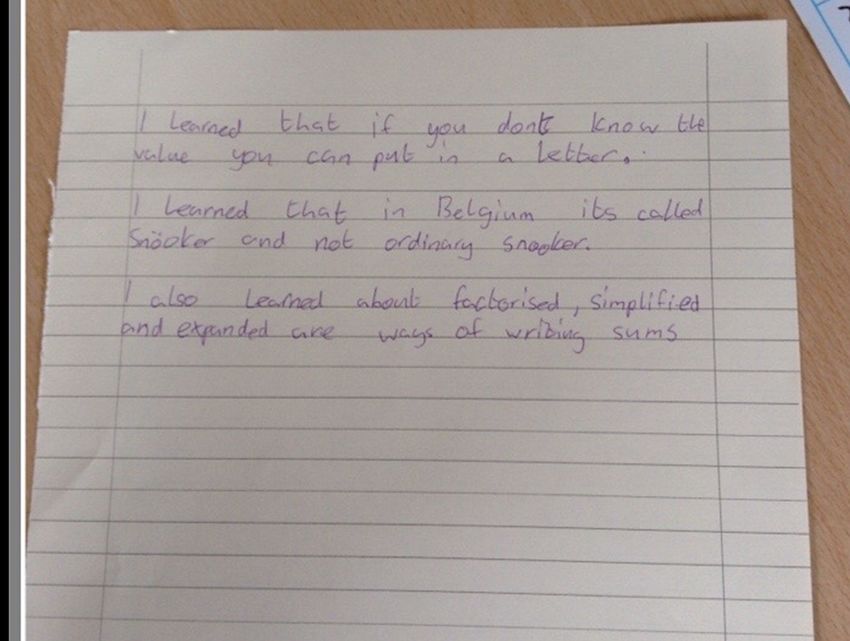 I learned that if you dont know the
value you can put in a letter.
I learned that in Belgium its called
Snöoker and not ordinary snooker.
I also learned about factorised, simplified
and expanded are ways of writing sums